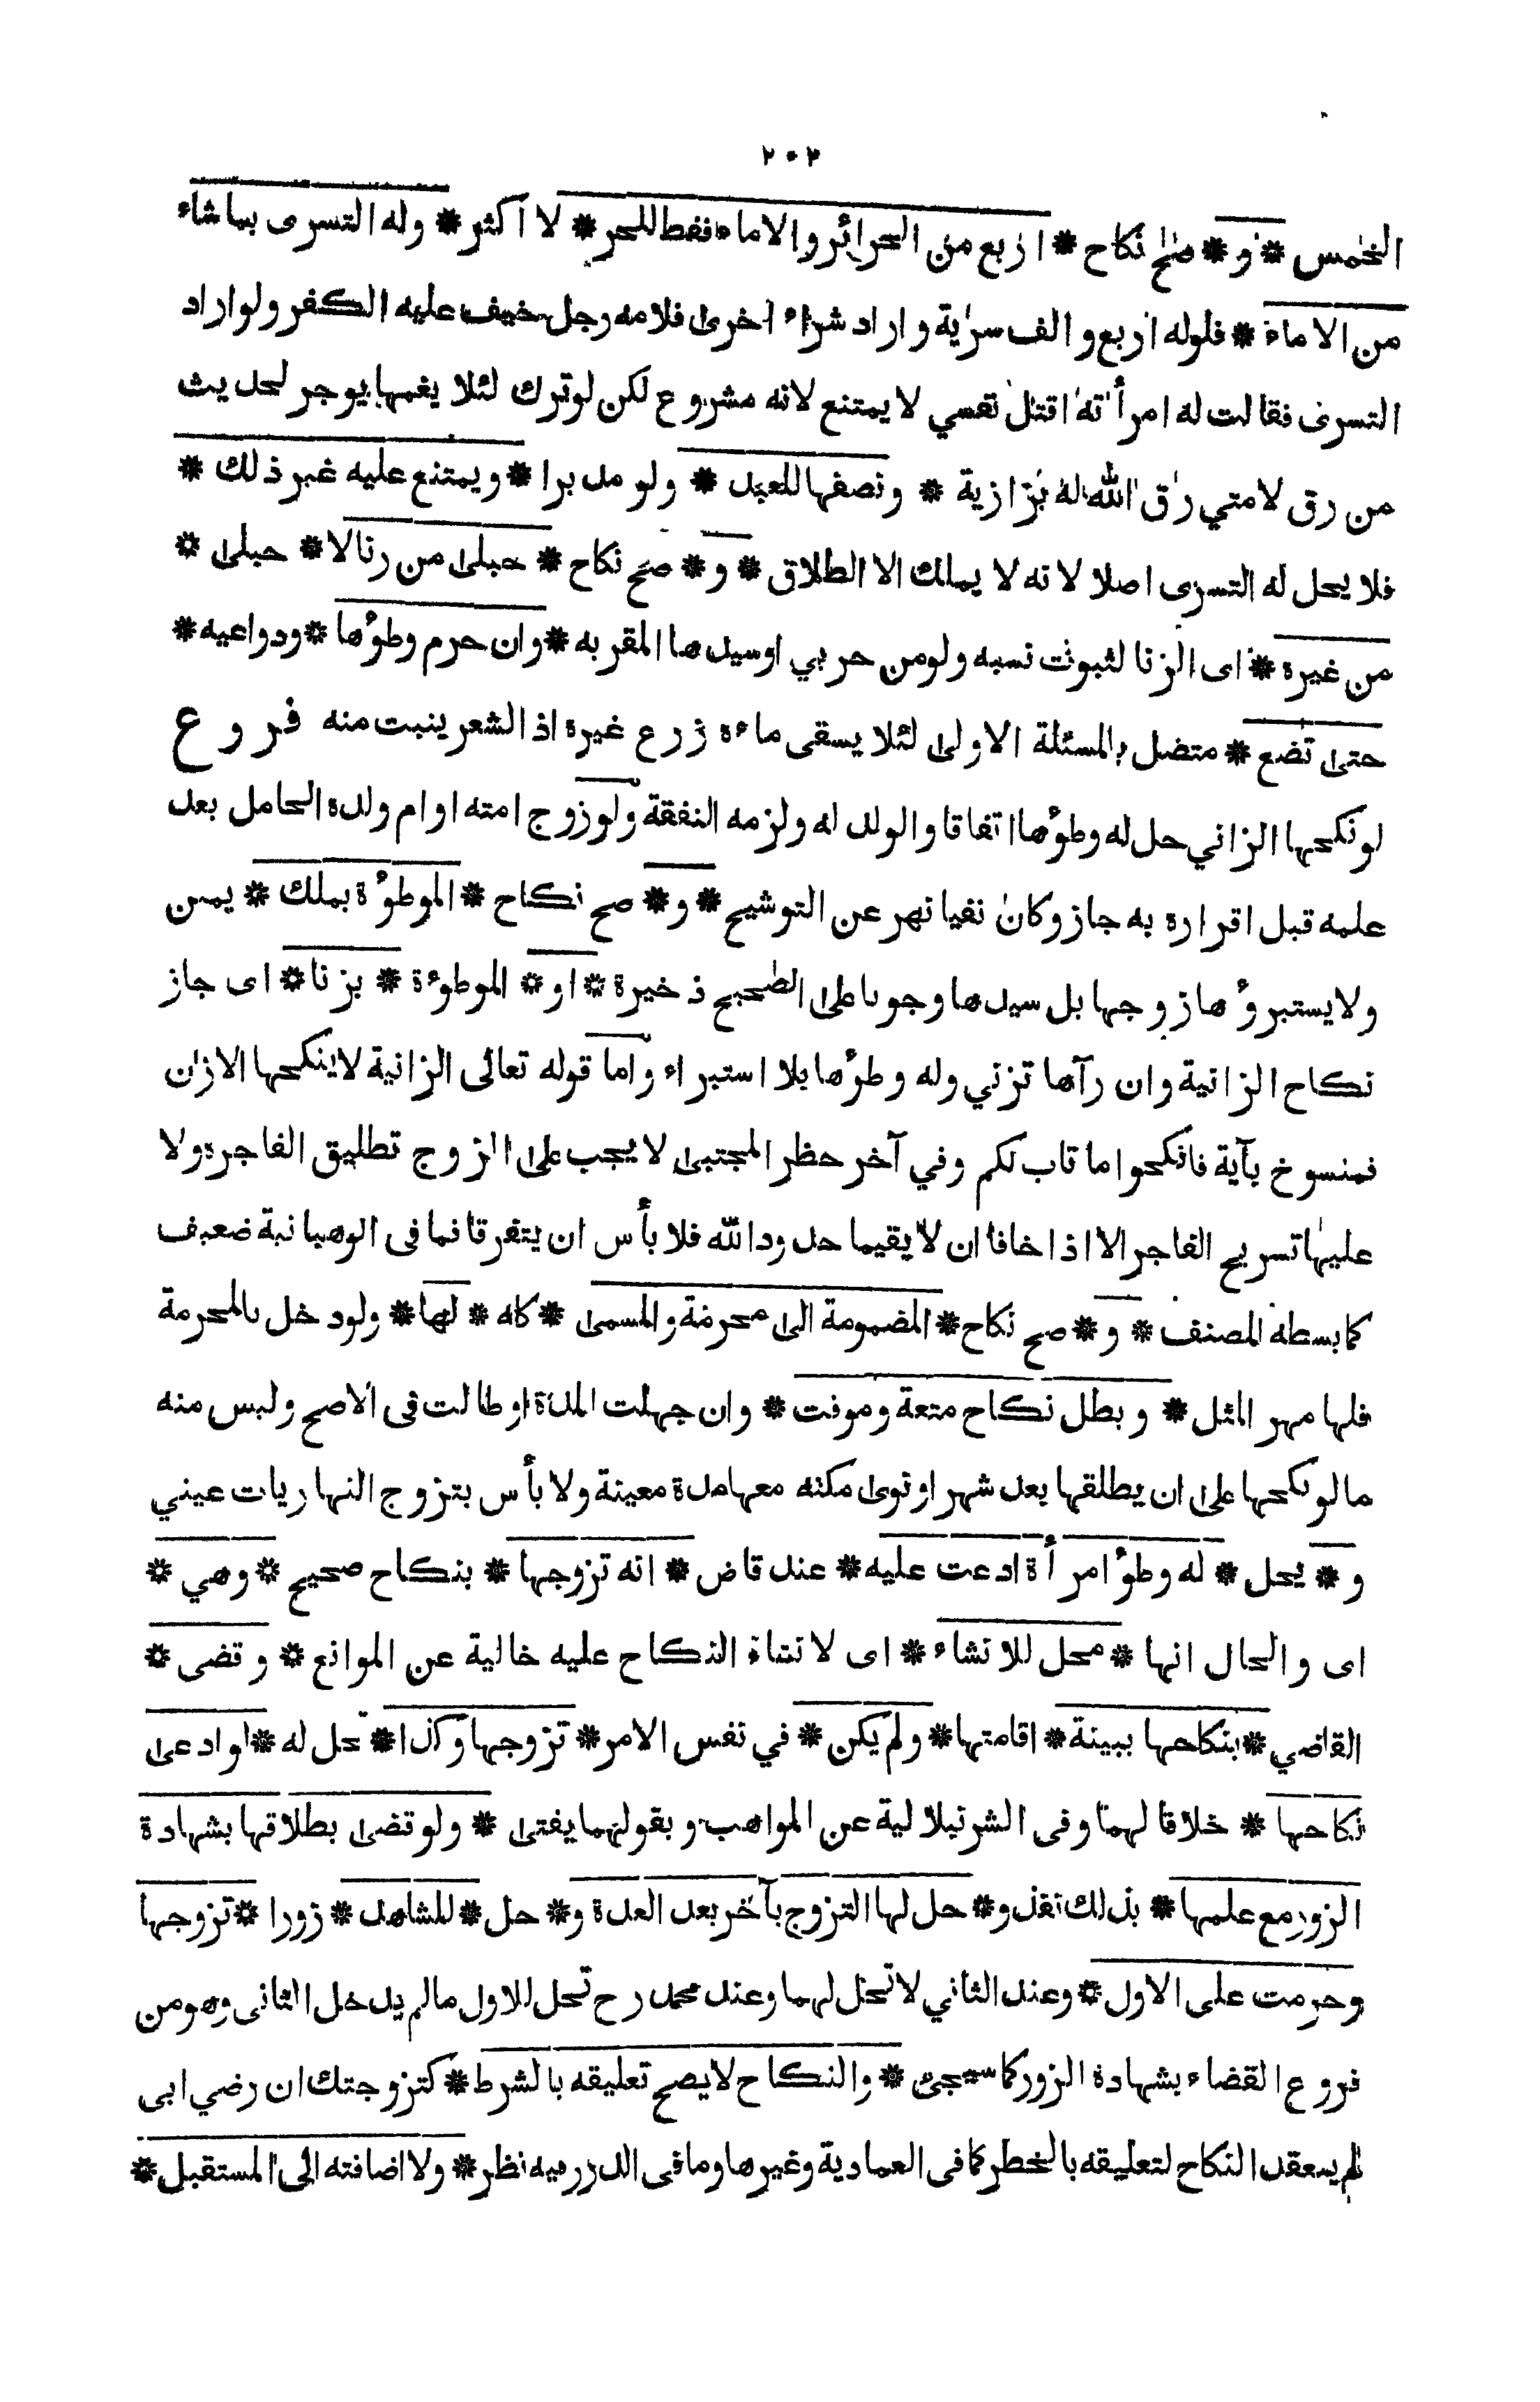 ٢٠٢
الخمس * و * صح نكاح * اربع من الحرائر والاماء فقط للحر * لا اكثر * وله التسرى بما شاء
من الاماء * فلوله اربع و الف سرية و اراد شراء اخرى فلامه رجل خيف عليه الكفر ولو اراد
التسرى فقالت له امرأته اقتل نفسي لا يمتنع لانه مشروع لكن لو ترك لئلا يغمها يوجر لحديث
من رق لامتي رق الله له بزازية * ونصفها للعبد * ولو مدبرا * ويمتنع عليه غير ذلك *
فلا يحل له التسرى اصلا لانه لا يملك الا الطلاق * و * صح نكاح * حبلى من زنا لا * حبلى *
من غيره * اى الزنا لثبوت نسبه ولو من حربي او سيدها المقر به * وان حرم وطؤها * ودواعيه *
حتى تضع * متصل بالمسئلة الاولى لئلا يسقى ماءه زرع غيره اذ الشعر ينبت منه فروع
لو نكحها الزاني حل له وطؤها اتفاقا والولد له ولزمه النفقة ولو زوج امته او ام ولده الحامل بعد
علمه قبل اقراره به جاز وكان نفيا نهر عن التوشيح * و * صح نكاح * الموطوءة بملك * يمين
ولا يستبرؤها زوجها بل سيدها وجوبا على الصحيح ذخيرة * او * الموطوءة * بزنا * اى جاز
نكاح الزانية وان رآها تزني وله وطؤها بلا استبراء واما قوله تعالى الزانية لا ينكحها الا زان
فمنسوخ بآية فانكحوا ما طاب لكم وفي آخر حظر المجتبى لا يجب على الزوج تطليق الفاجرة ولا
عليها تسريح الفاجر الا اذا خافا ان لا يقيما حدود الله فلا بأس ان يتفرقا فما فى الوهبانية ضعيف
كما بسطه المصنف * و * صح نكاح * المضمومة الى محرمة والمسمى * كله * لها * ولو دخل بالمحرمة
فلها مهر المثل * وبطل نكاح متعة وموقت * وان جهلت المدة او طالت فى الاصح وليس منه
ما لو نكحها على ان يطلقها بعد شهر او نوى مكثه معها مدة معينة ولا بأس بتزوج النهاريات عيني
و * يحل * له وطؤ امرأة ادعت عليه * عند قاض * انه تزوجها * بنكاح صحيح * وهي *
اى والحال انها * محل للانشاء * اى لانشاء النكاح عليه خالية عن الموانع * وقضى *
القاضي * بنكاحها ببينة * اقامتها * ولم يكن * في نفس الامر * تزوجها وكذا * تحل له * لو ادعى
نكاحها * خلافا لهما وفى الشرنبلالية عن المواهب وبقولهما يفتى * ولو قضى بطلاقها بشهادة
الزور مع علمها * بذلك نفذ و * حل لها التزوج بآخر بعد العدة و * حل * للشاهد * زورا * تزوجها
وحرمت على الاول * وعند الثاني لا تحل لهما وعند محمد رح تحل للاول ما لم يدخل الثانى وهو من
فروع القضاء بشهادة الزور كما سيجئ * والنكاح لا يصح تعليقه بالشرط * كتزوجتك ان رضي ابى
لم ينعقد النكاح لتعليقه بالخطر كما فى العمادية وغيرها وما فى الدرر فيه نظر * ولا اضافته الى المستقبل *